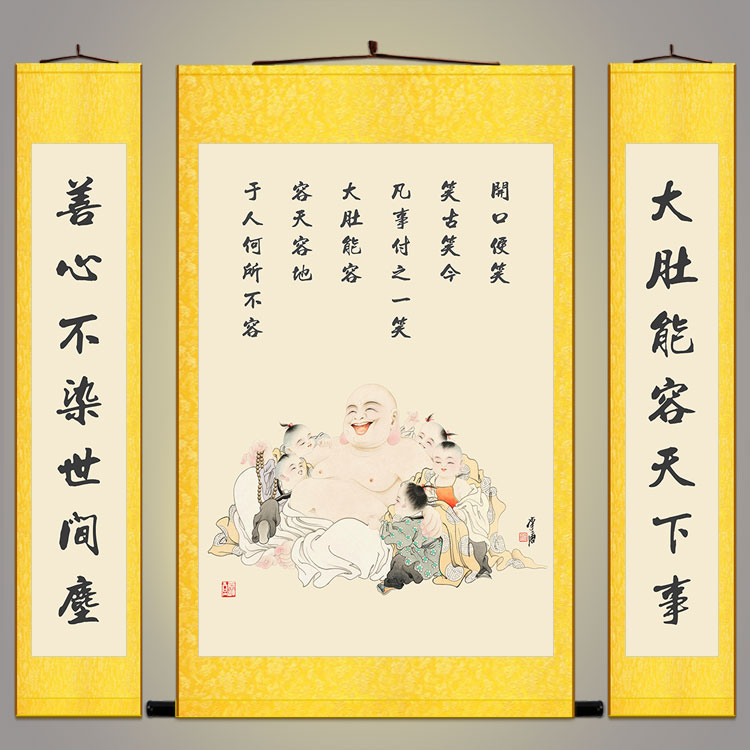 大肚能容天下事
開口便笑
笑古笑今
凡事付之一笑
大肚能容
容天容地
于人何所不容
善心不染世間塵